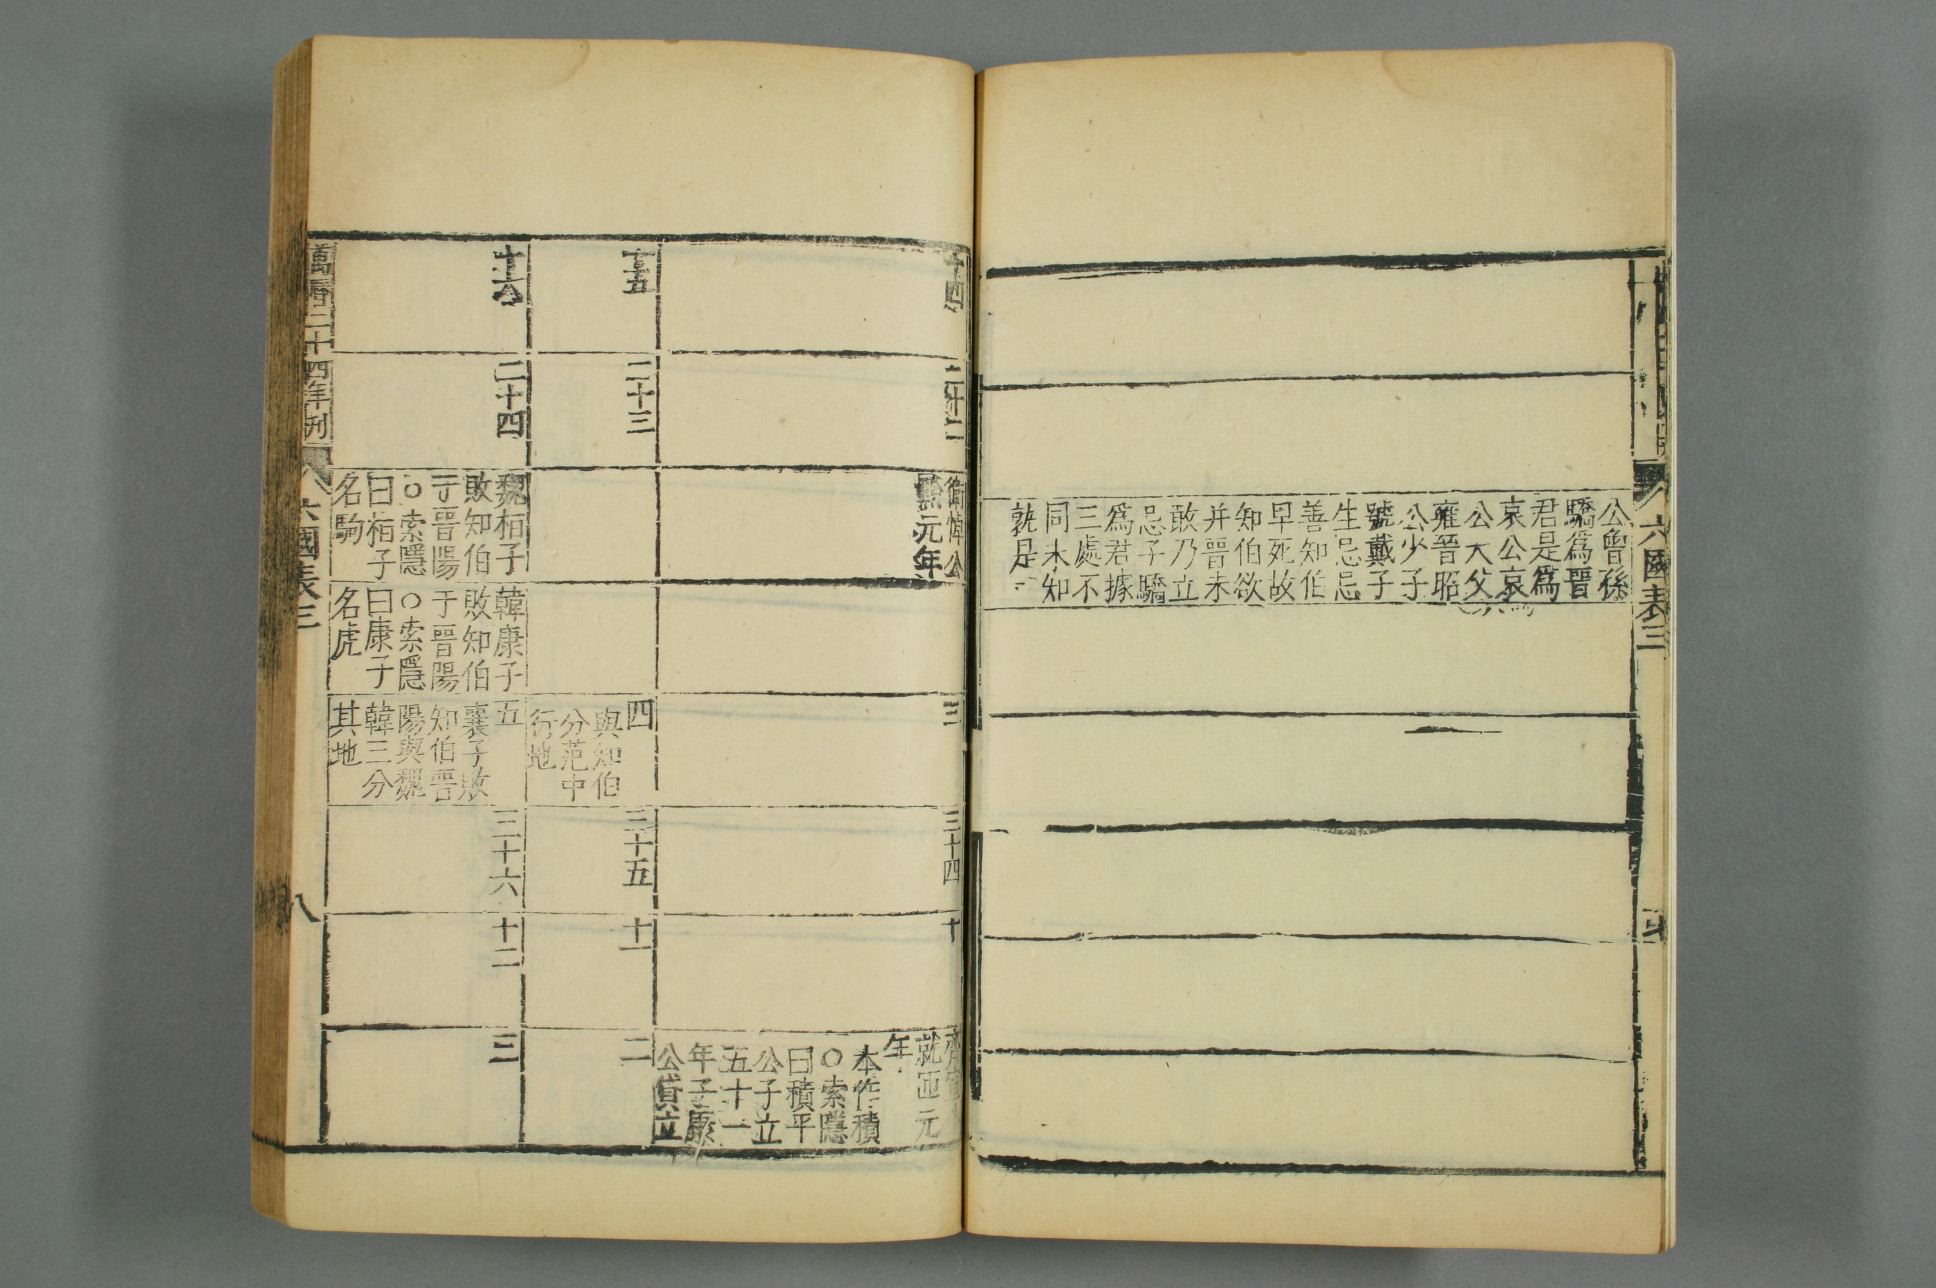 六國表三
公曾孫
驕爲晉
君是爲
哀公哀
公大父
雍晉昭
公少子
號戴子
生忌忌
善知伯
早死故
知伯欲
并晉未
敢乃立
忌子驕
爲君據
三處不
同未知
就是
十四
二十二
衛悼公
黔元年
三
三十四
十
就匝元
年
本作積
○索隱
曰積平
公子立
五十一
年子康
公貸立
十五
二十三
四
與知伯
分范中
行地
三十五
十一
二
十六
二十四
魏桓子
敗知伯
于晉陽
○索隱
曰桓子
名駒
韓康子
敗知伯
于晉陽
○索隱
曰康子
名虎
五
襄子敗
知伯晉
陽與魏
韓三分
其地
三十六
十二
三
萬曆二十四年刊
六國表三
八